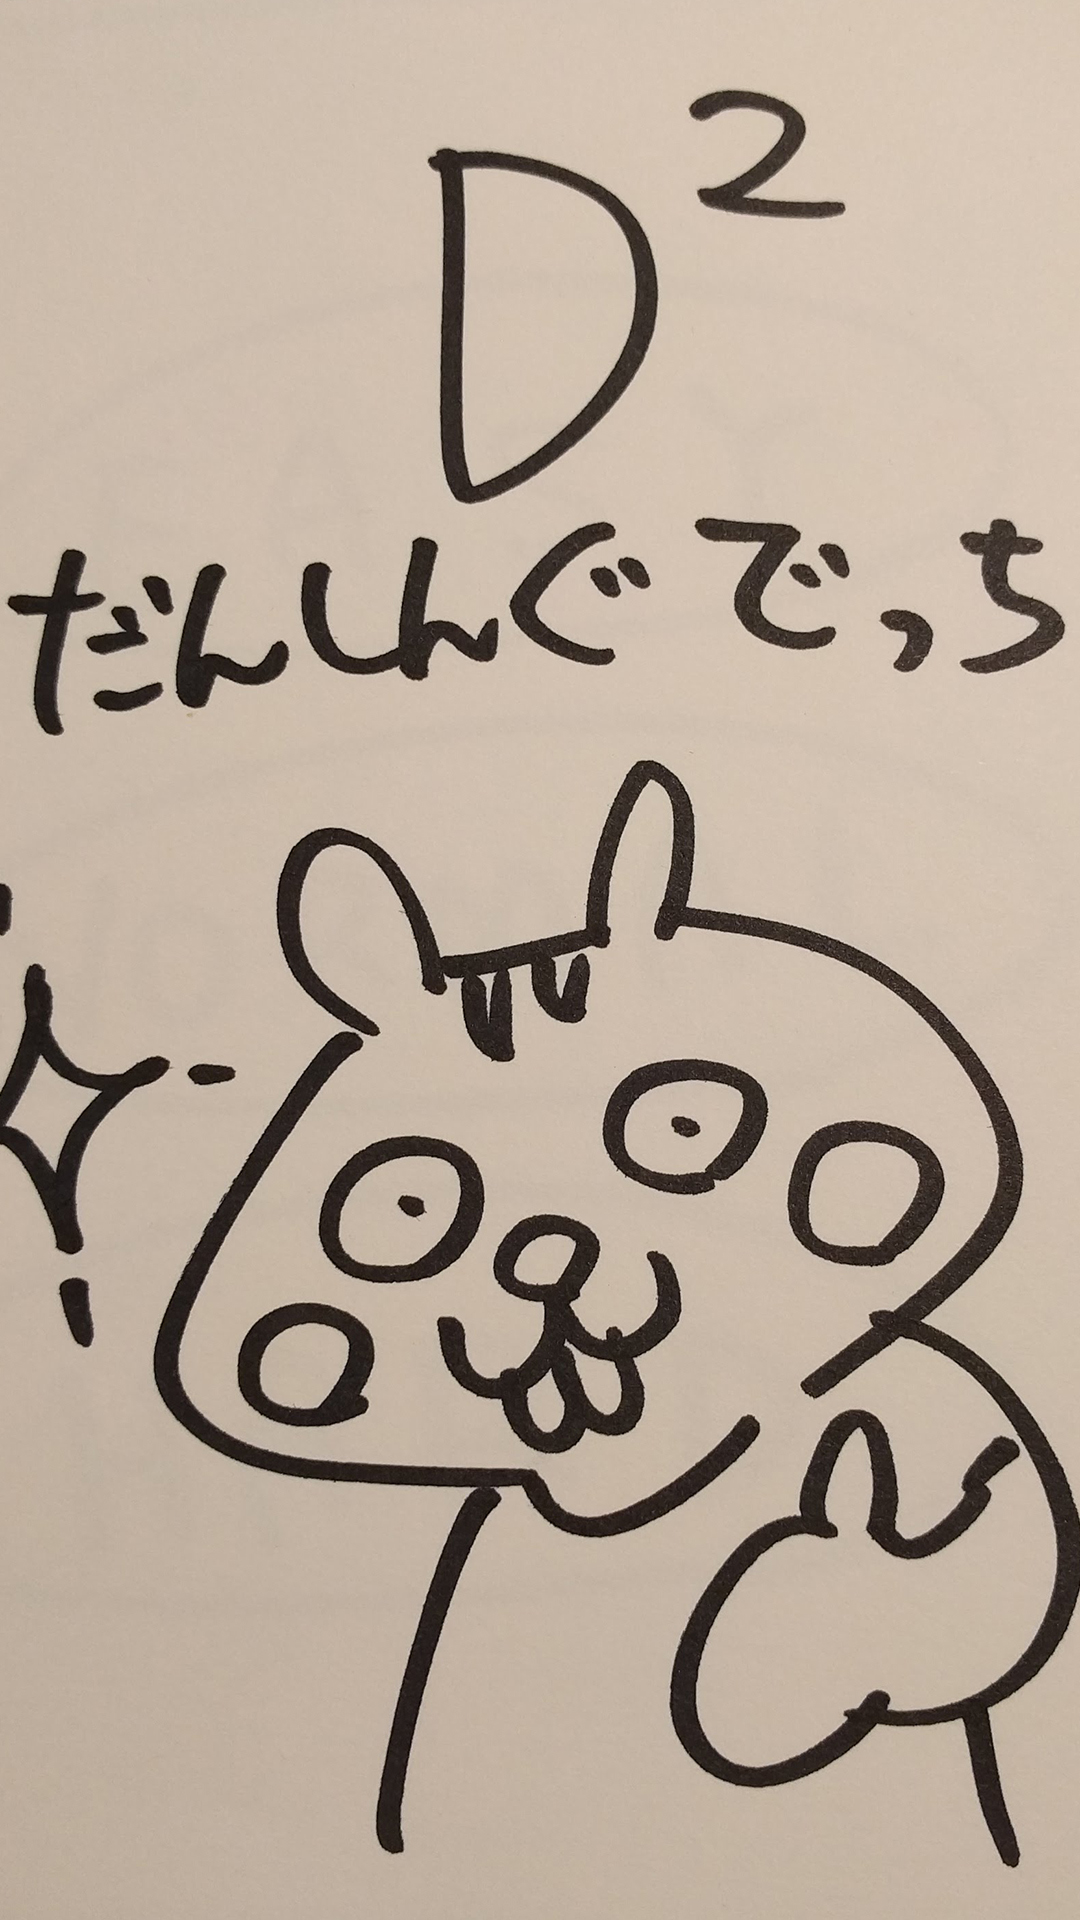 D²
だんしんぐでっち